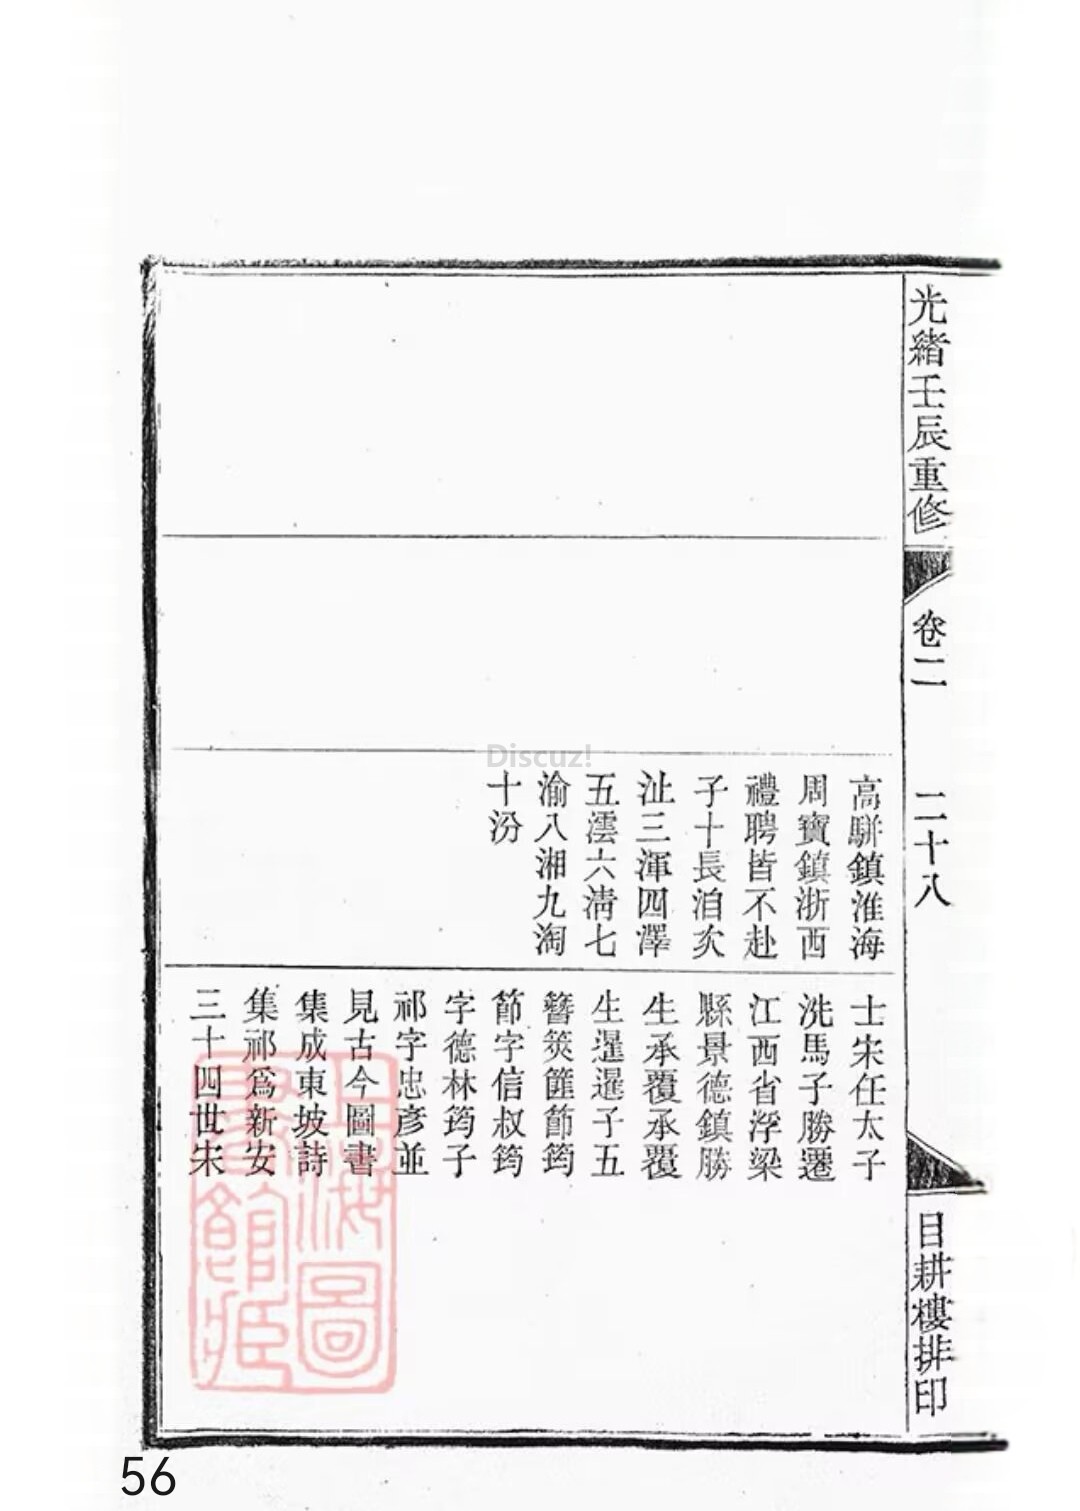 光緒壬辰重修
卷二
二十八
目耕樓排印
高駢鎮淮海
周寶鎮浙西
禮聘皆不赴
子十長洎次
沚三渾四澤
五澐六淸七
渝八湘九淘
十汾
士宋任太子
洗馬子勝遷
江西省浮梁
縣景德鎮勝
生承覆承覆
生暹暹子五
簪筴篚節筠
節字信叔筠
字德林筠子
祁字忠彥並
見古今圖書
集成東坡詩
集祁爲新安
三十四世宋
上海圖書館藏
Discuz!
56